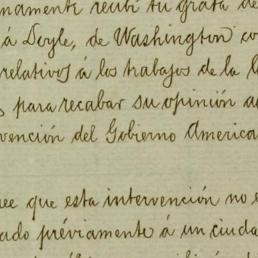 namente recibí tu grata de
á Doyle, de Washington co
relativos á los trabajos de la
para recabar su opinión a
vención del Gobierno America
ee que esta intervención no e
ado préviamente á un ciuda